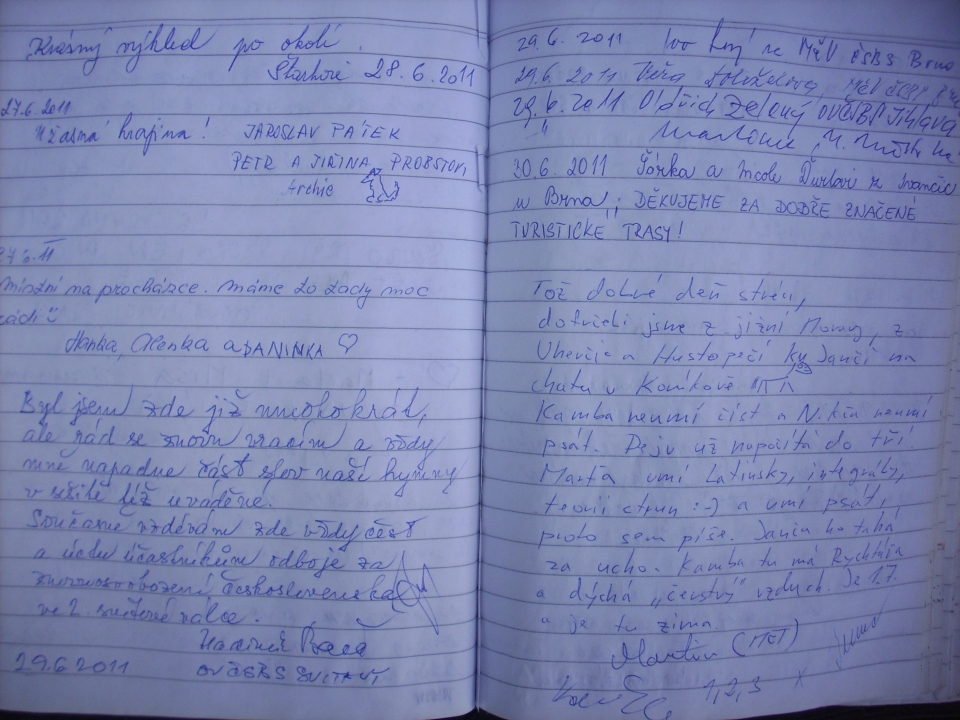 Krásný výhled po okolí.
28.6.2011
27.6.2011
Úžasná krajina! JAROSLAV PÁTEK
PETR A JIŘINA PROBSTOVI
Archie
Místní na procházce. Máme to tady moc
rádi
Hanka, Alenka a DANINKA
Byl jsem zde již mnohokrát,
ale rád se znovu vracím a vždy
mně napadne část slov naší hymny
v sešitě již uváděné.
Současně vzdávám zde vždy čest
a úctu účastníkům odboje za
znovuosvobození Československa
ve 2. světové válce.
OV ČSBS SVITAVY
29.6 2011
29.6. 2011 MěV ČSBS Brno
29.6. 2011 Věra
29.6.2011 Oldřich Zelený OV ČSBS Jihlava
"
30.6 2011 Šárka a Nicole z Ivančic
u Brna; DĚKUJEME ZA DOBŘE ZNAČENÉ
TURISTICKÉ TRASY!
Tož dobré deň strýcu,
dofrčeli jsme z jižní Moravy, z
a Hustopečí ku Janči na
chatu v Koníkově
Kamba neumí číst a neumí
psát. Peju už napočítá do tří.
Marťa umí Latinsky, integrály,
teorii strun :-) a umí psát,
proto sem píše. Janča ho tahá
za ucho. Kamba tu má Rychtája
a dýchá "čerstvý" vzduch. Je 1.7.
a je tu zima
Martin (MET)
1,2,3 x